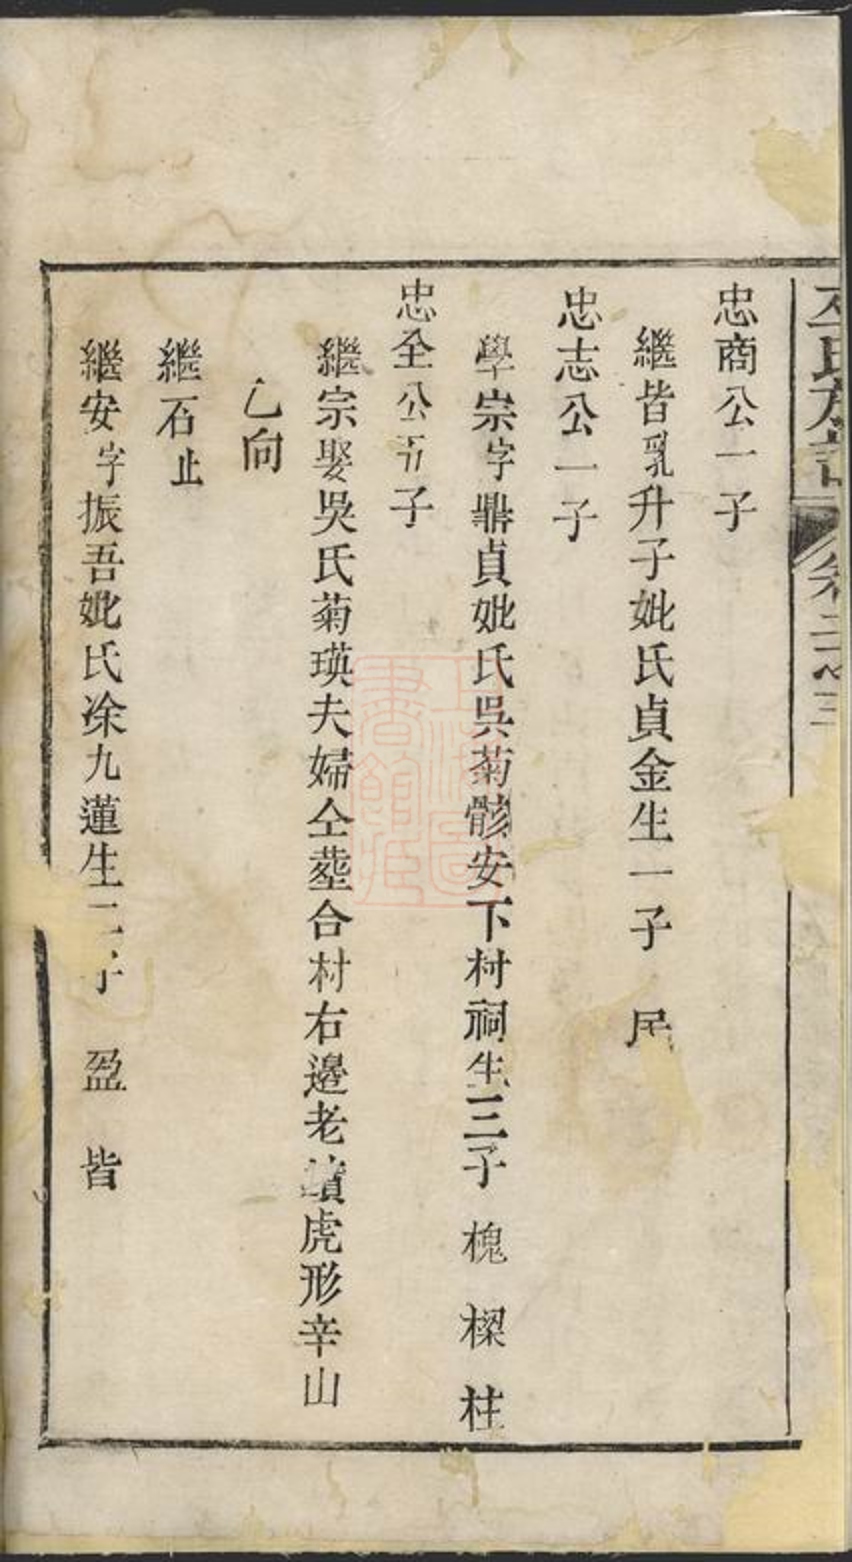 氏族譜 卷二之三
忠商公一子
繼皆乳升子妣氏貞金生一子 民
忠志公一子
學崇字鼎貞妣氏吳菊骸安下村祠生三子 槐 樑 柱
忠全公五子
繼宗娶吳氏菊瑛夫婦仝塟合村右邊老墳虎形辛山
乙向
繼石止
繼安字振吾妣氏凃九蓮生二子 盈 皆
上海圖書館藏